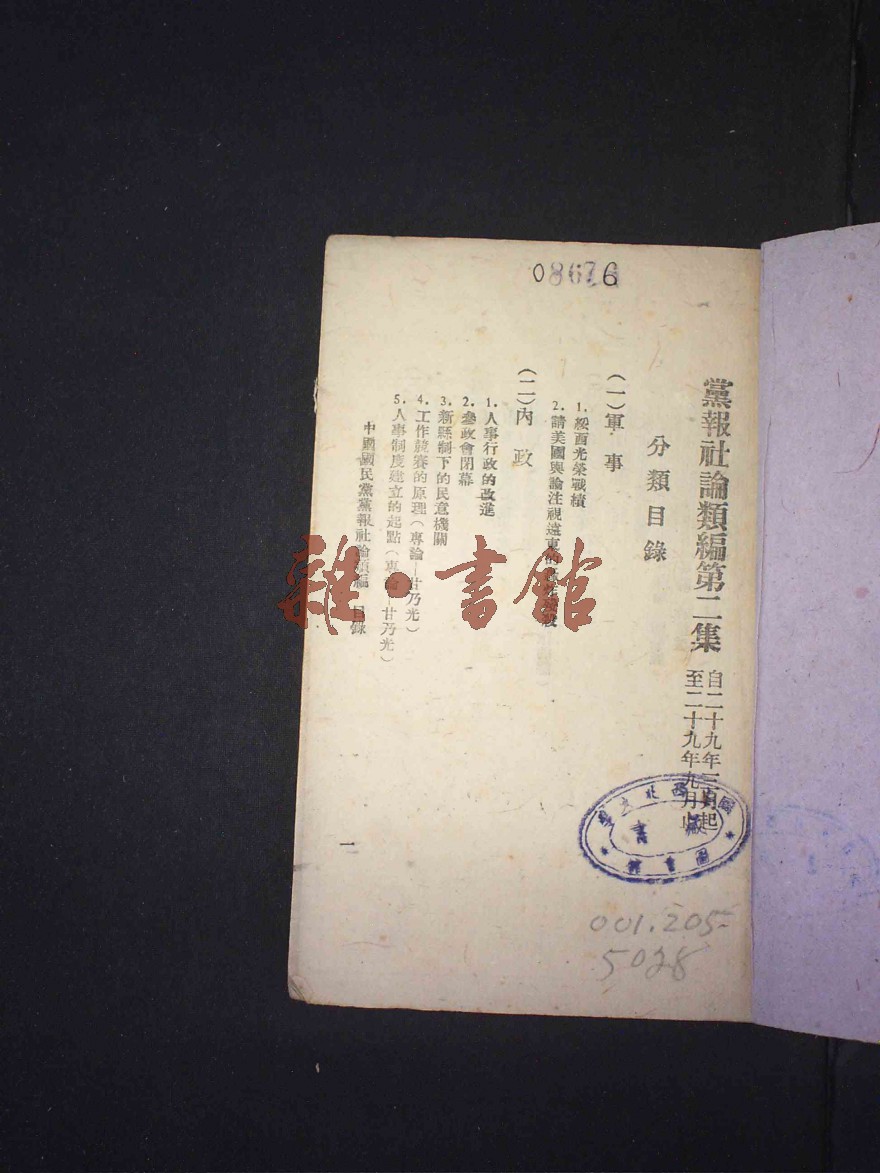 08676
黨報社論類編第二集
自二十九年三月起
至二十九年九月止
分類目錄
(一)軍事
1.綏西光榮戰績
2.請美國輿論注視遠東的
(二)內政
1.人事行政的改進
2.參政會閉幕
3.新縣制下的民意機關
4.工作競賽的原理(專論—甘乃光)
5.人事制度建立的起點(專論—甘乃光)
中國國民黨黨報社論類編 目錄
一
雜·書館
國立西北大學
藏書
圖書館
001.205
5028